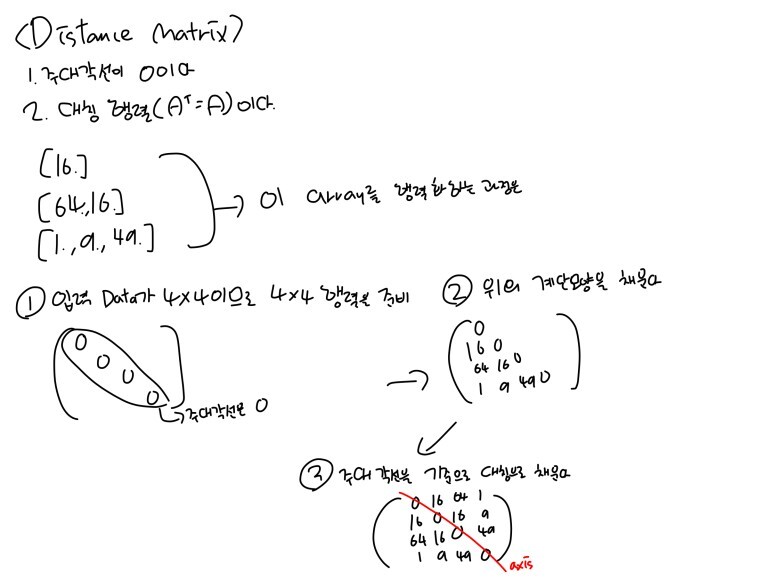 <Distance Matrix>
1. 주대각선이 0이다
2. 대칭 행렬(Aᵀ=A)이다.
[16.]
[64.,16.]
[1.,9.,49.]
→ 이 array를 행렬화하는 과정은
① 입력 Data가 4×4이므로 4×4 행렬을 준비
0
0
0
0
→주대각선은 0
② 위의 계단모양을 채운다
→
0
16 0
64 16 0
1 9 49 0
③ 주대각선을 기준으로 대칭으로 채운다
0 16 64 1
16 0 16 9
64 16 0 49
1 9 49 0
axis